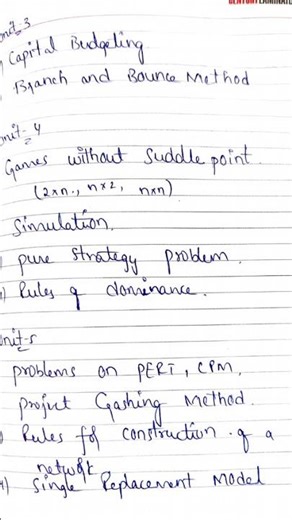 CENTURY EXAMINATI
Unit-3
Capital Budgeting
Branch and Bounce Method
Unit-4
Games without Suddle point.
(2xn., nx2, nxn)
Simulation.
pure Strategy problem.
Rules of dominance.
Unit-5
problems on PERT, CPM.
project Gashing Method.
Rules for construction of a
network
Single Replacement Model